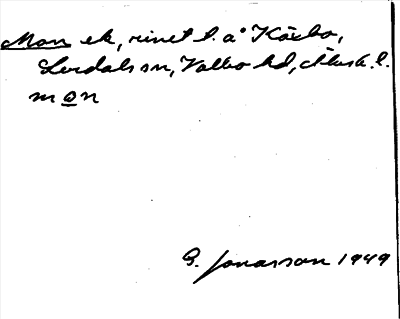 Mon ek, rivet l. a° Kärbo,
Lerdals sn, Valbo hd, Älvsb. l.
mon
G. Jonasson 1949